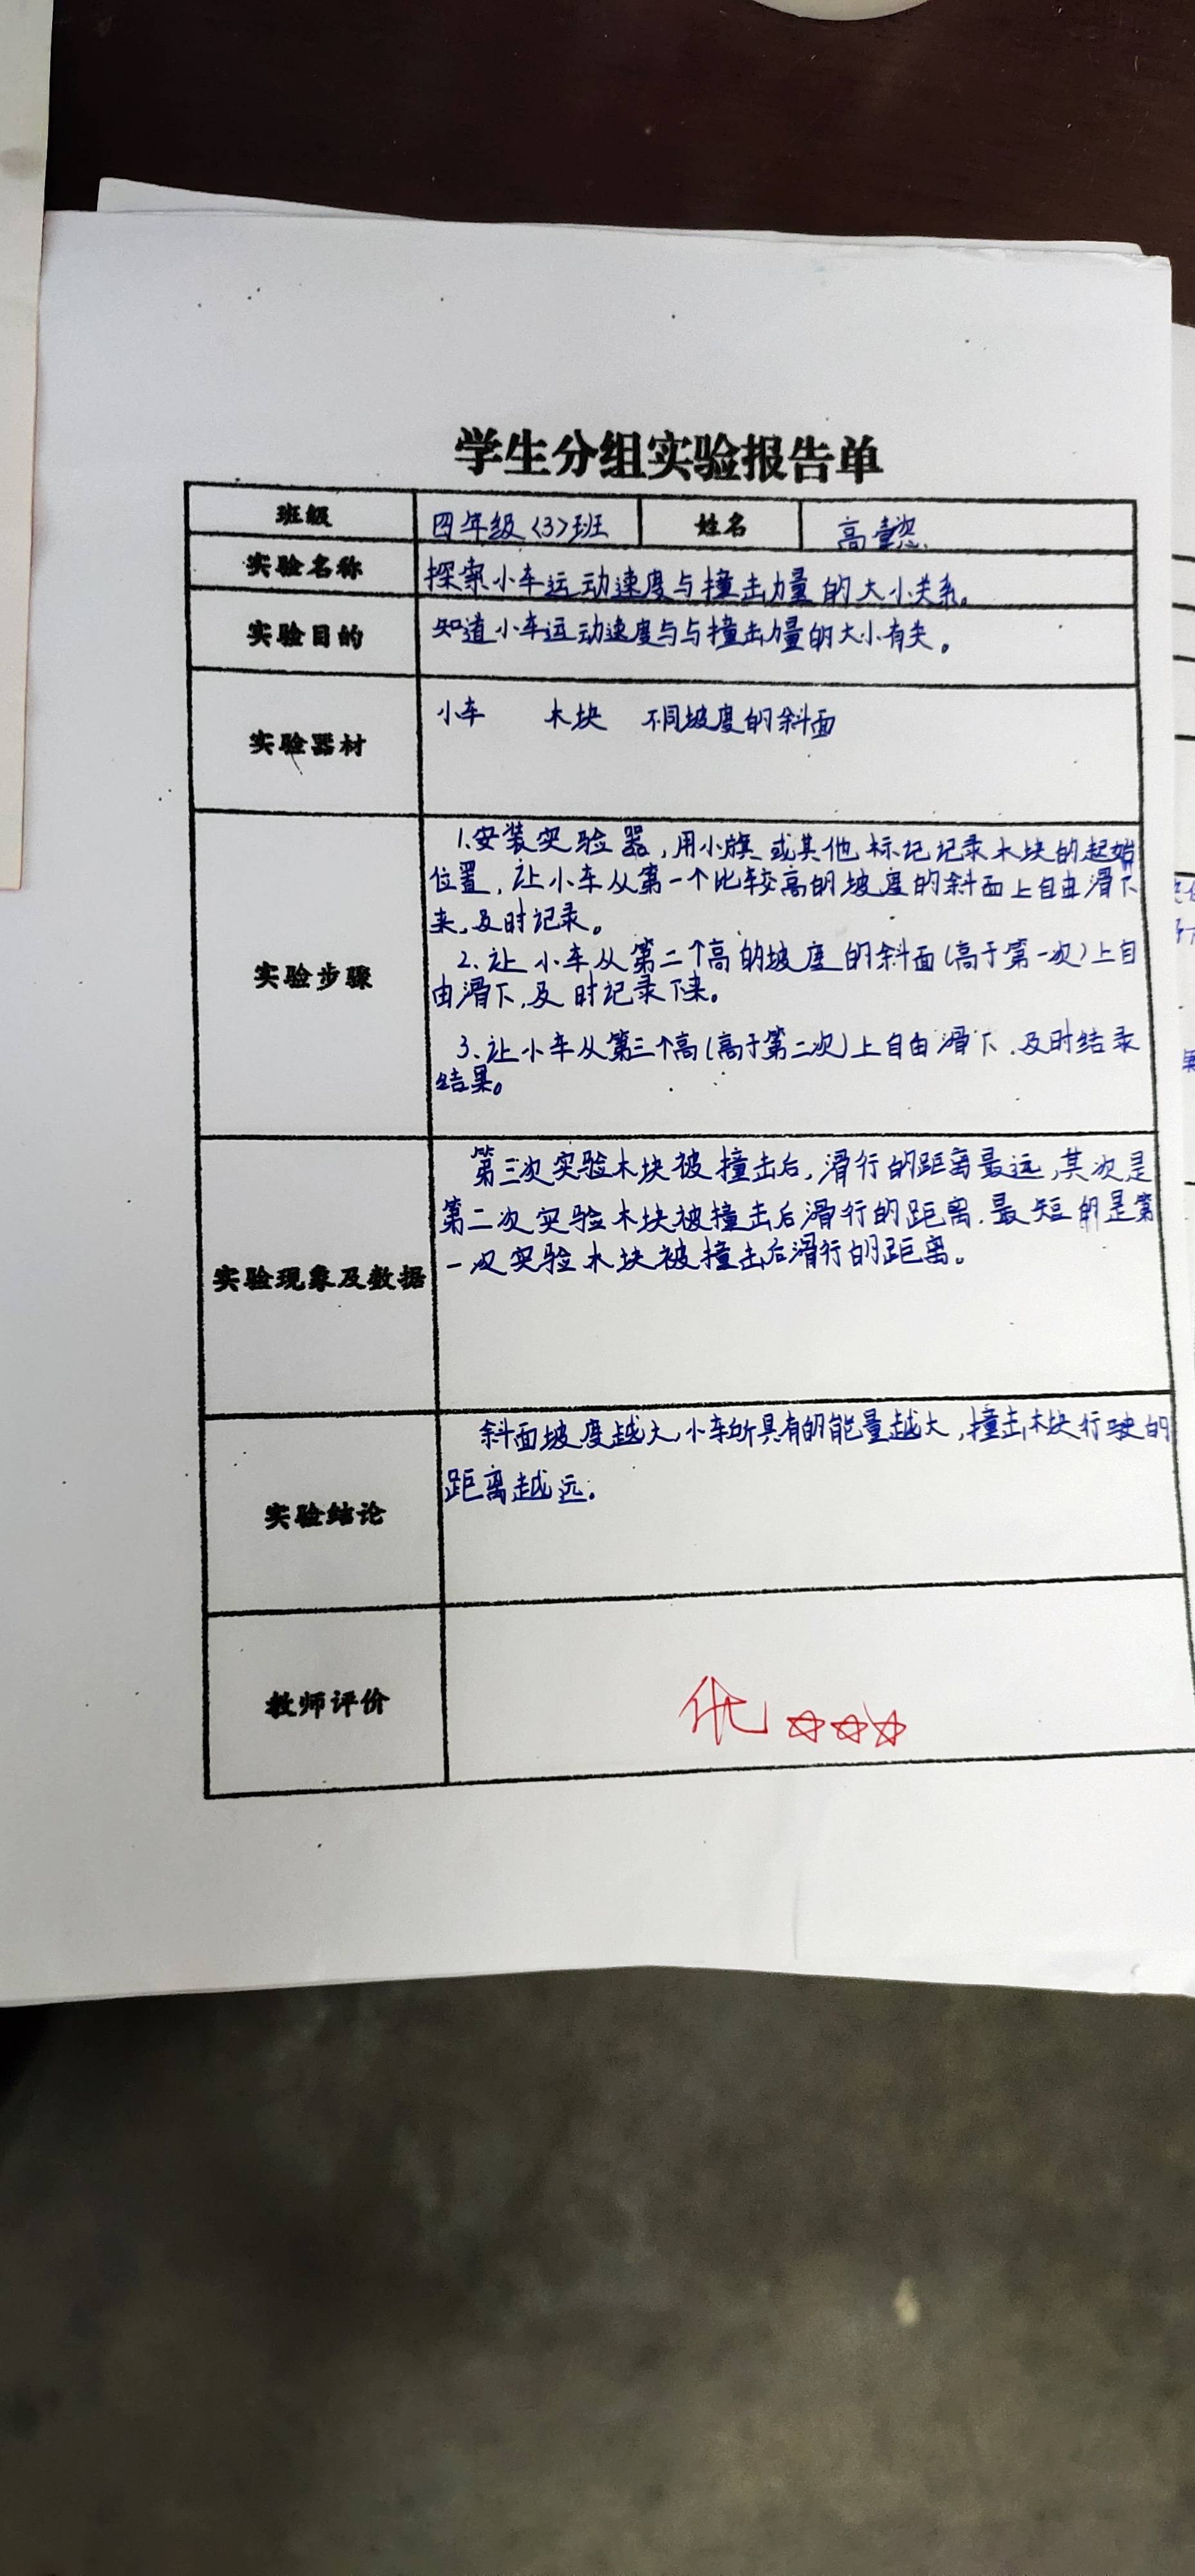 学生分组实验报告单
班级 四年级〈3〉班 姓名 高
实验名称 探索小车运动速度与撞击力量的大小关系。
实验目的 知道小车运动速度与与撞击力量的大小有关。
实验器材 小车 木块 不同坡度的斜面
实验步骤
1.安装实验器,用小旗或其他标记记录木块的起始
位置,让小车从第一个比较高的坡度的斜面上自由滑下
来,及时记录。
2.让小车从第二个高的坡度的斜面(高于第一次)上自
由滑下,及时记录下来。
3.让小车从第三个高(高于第二次)上自由滑下.及时结录
结果。
实验现象及数据
第三次实验木块被撞击后,滑行的距离最远,其次是
第二次实验木块被撞击后滑行的距离.最短的是第
一次实验木块被撞击后滑行的距离。
实验结论
斜面坡度越大,小车所具有的能量越大,撞击木块行驶的
距离越远.
教师评价 优 ☆☆☆